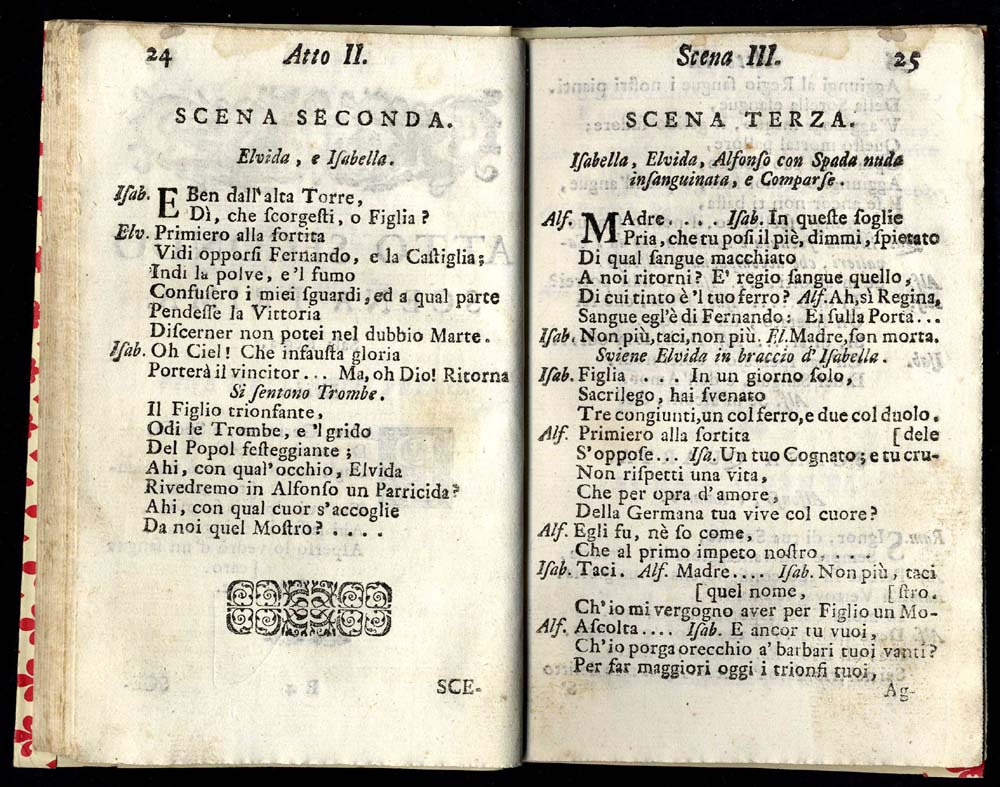 24 Atto II.
SCENA SECONDA.
Elvida, e Iſabella.
Iſab. E Ben dall'alta Torre,
Dì, che ſcorgeſti, o Figlia?
Elv. Primiero alla ſortita
Vidi opporſi Fernando, e la Caſtiglia;
Indi la polve, e 'l fumo
Confuſero i miei ſguardi, ed a qual parte
Pendeſſe la Vittoria
Diſcerner non potei nel dubbio Marte.
Iſab. Oh Ciel! Che infauſta gloria
Porterà il vincitor... Ma, oh Dio! Ritorna
Si ſentono Trombe.
Il Figlio trionfante,
Odi le Trombe, e 'l grido
Del Popol feſteggiante;
Ahi, con qual'occhio, Elvida
Rivedremo in Alfonſo un Parricida?
Ahi, con qual cuor s'accoglie
Da noi quel Moſtro?....
SCE-
Scena III. 25
SCENA TERZA.
Iſabella, Elvida, Alfonſo con Spada nuda
inſanguinata, e Comparſe.
Alf. MAdre.... Iſab. In queſte ſoglie
Pria, che tu poſi il piè, dimmi, ſpietato
Di qual ſangue macchiato
A noi ritorni? E' regio ſangue quello,
Di cui tinto è 'l tuo ferro? Alf. Ah, sì Regina,
Sangue egl'è di Fernando: Ei ſulla Porta...
Iſab. Non più, taci, non più. El. Madre, ſon morta.
Sviene Elvida in braccio d'Iſabella.
Iſab. Figlia .... In un giorno ſolo,
Sacrilego, hai ſvenato
Tre congiunti, un col ferro, e due col duolo.
Alf. Primiero alla ſortita [dele
S'oppoſe... Iſa. Un tuo Cognato; e tu cru-
Non riſpetti una vita,
Che per opra d'amore,
Della Germana tua vive col cuore?
Alf. Egli fu, nè ſo come,
Che al primo impeto noſtro....
Iſab. Taci. Alf. Madre.... Iſab. Non più, taci
[quel nome, [ſtro.
Ch'io mi vergogno aver per Figlio un Mo-
Alf. Aſcolta.... Iſab. E ancor tu vuoi,
Ch'io porga orecchio a' barbari tuoi vanti?
Per far maggiori oggi i trionfi tuoi,
Ag-